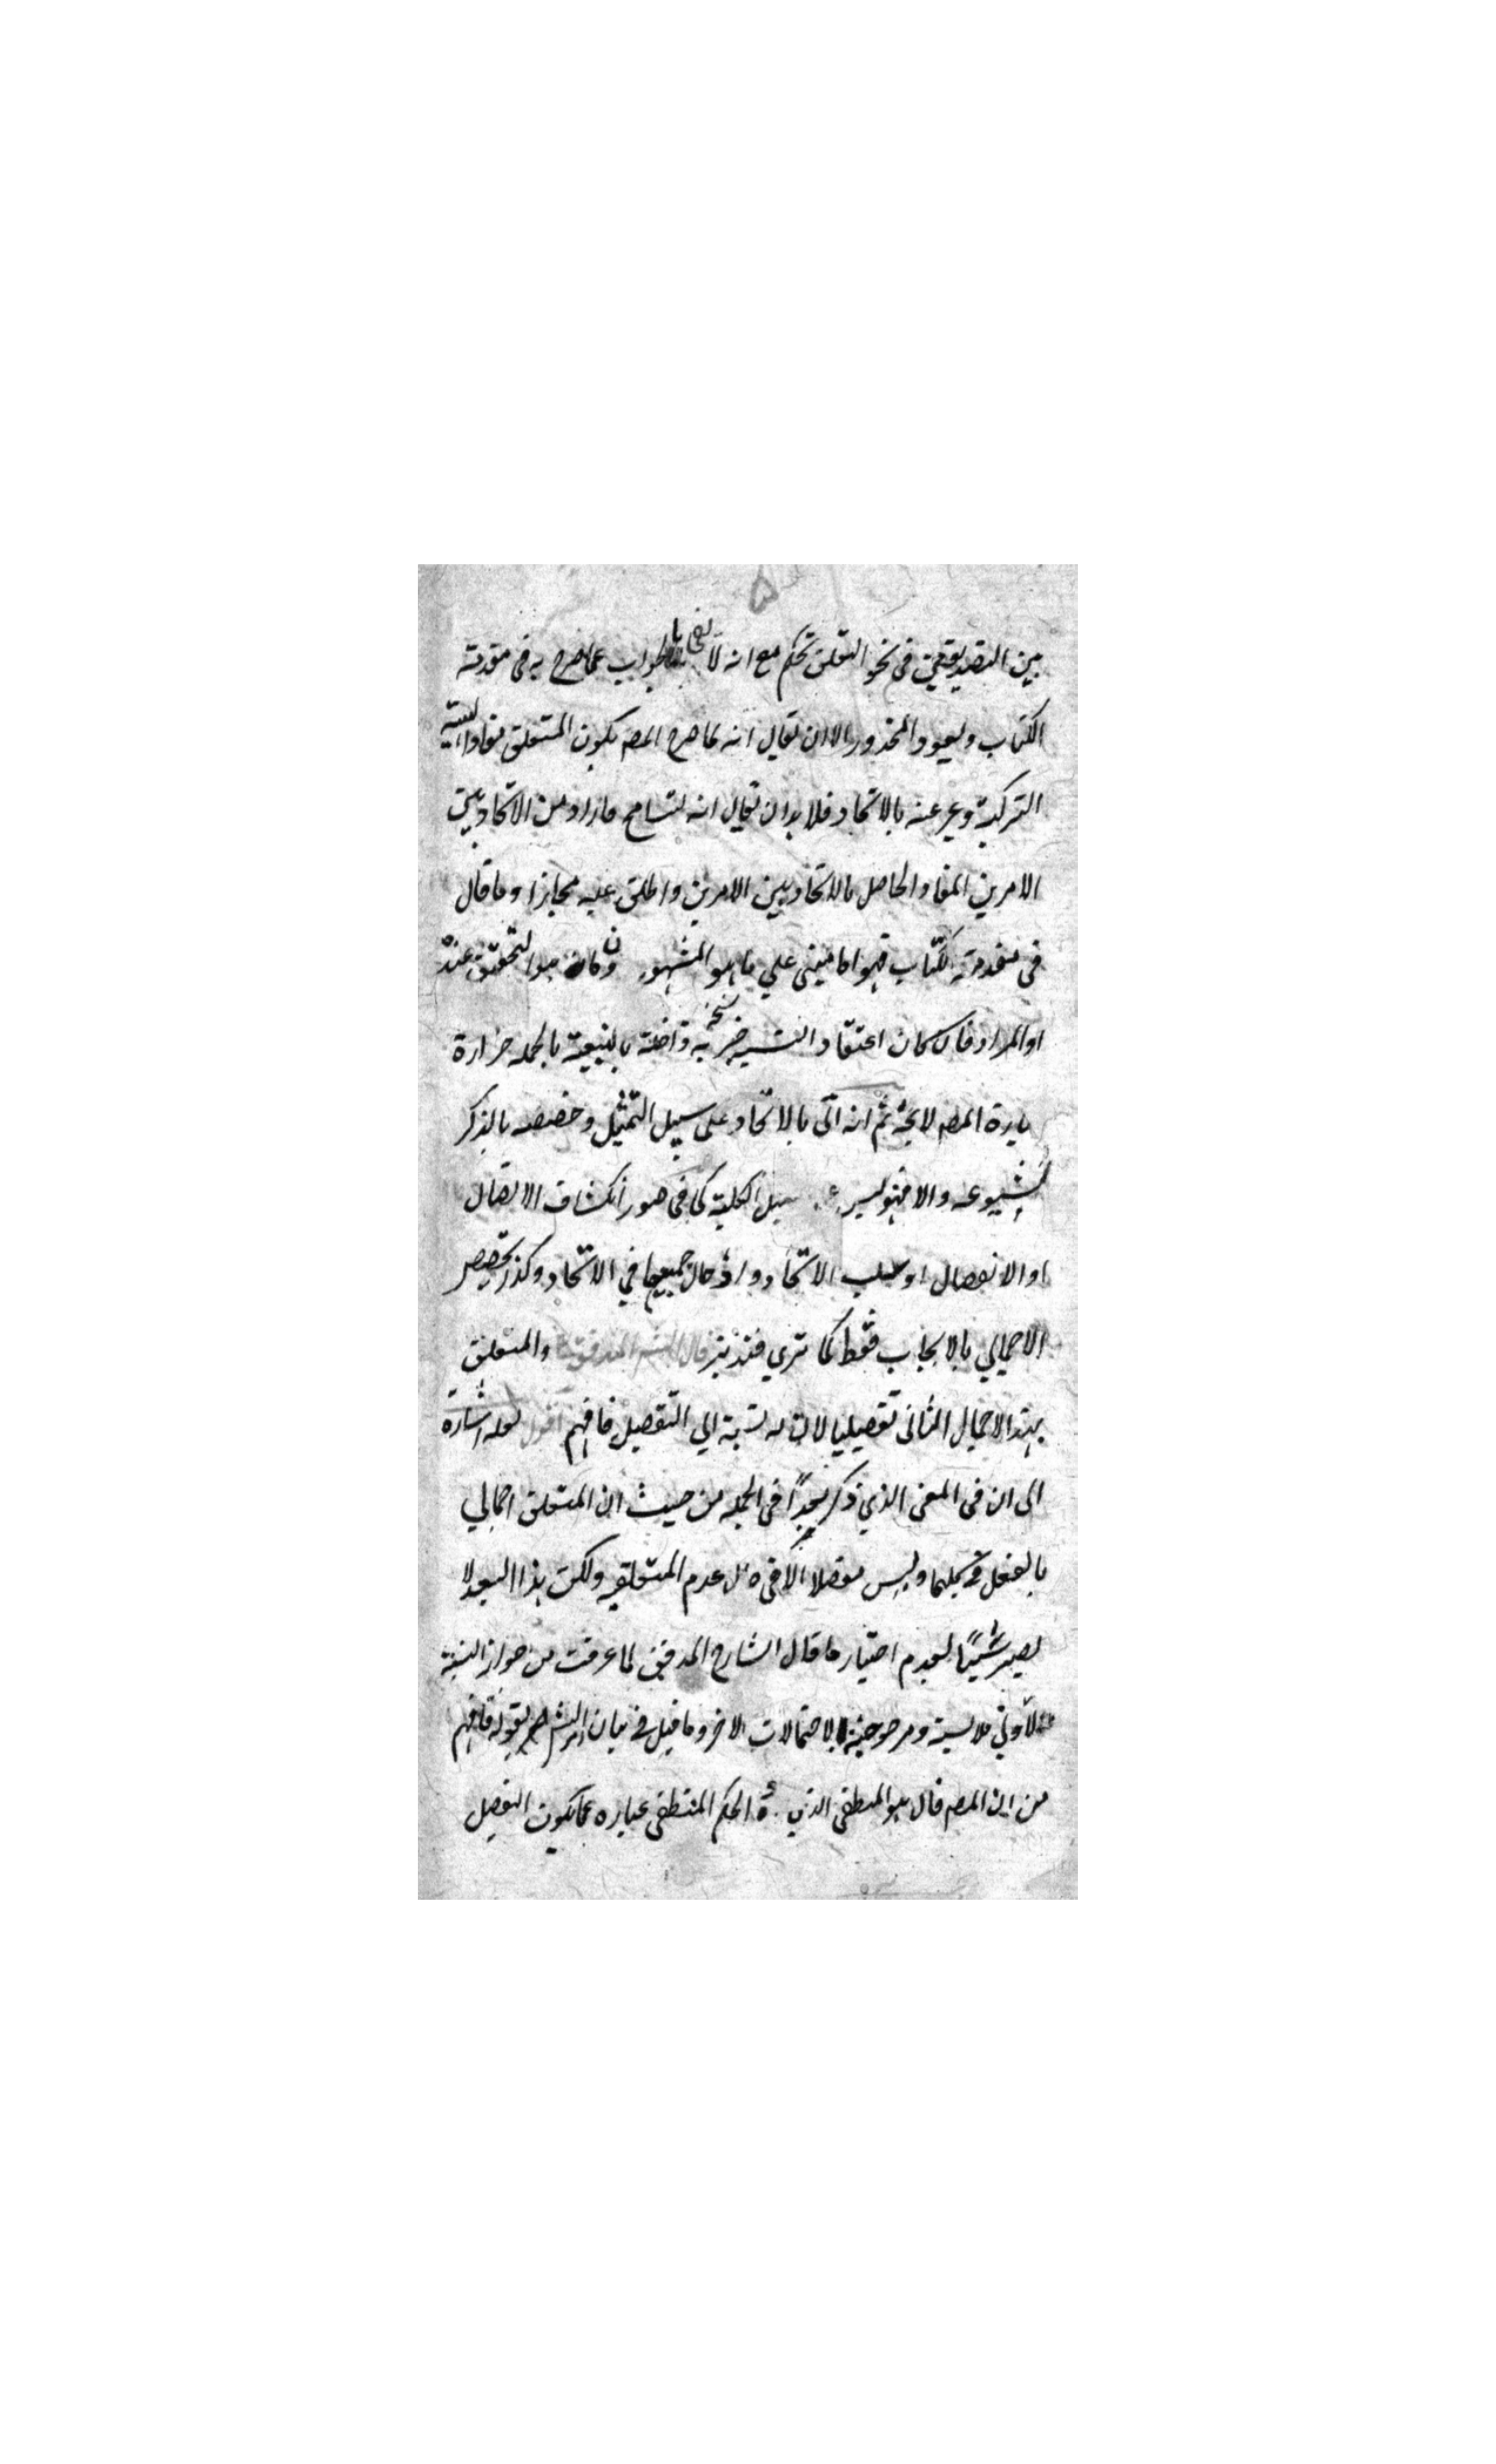 ۵
بين التصديقين فى نحو التعلق تحكم مع انه لا يفى بالجواب عما صرح به فى مقدمة
الكتاب ويعود المحذور الا ان يقال انه لما صرح المصـ بكون المتعلق مفاد الهيئة
التركيبية وعبر عنه بالاتحاد فلا بد ان يقال انه لتسامح فاراد من الاتحاد بين
الامرين المفاد الحاصل بالاتحاد بين الامرين واطلق عليه مجازا وما قال
فى مقدمة الكتاب فهو اما مبنى علي ما هو المشهور وان كان هو التحقيق عنده
او المراد فان كان اعتقاد النسبة الخبرية واقعة بالتبعية بالجملة حزازة
المصـ لائحة ثم انه اتى بالاتحاد على سبيل التمثيل وخصصه بالذكر
لشيوعه والا فهو ليس سبيل الكلية كما فى صور انكشاف الاتصال
او الانفصال او سلب الاتحاد و جميعها في الاتحاد وكذا تخصيص
الاجمالي بالايجاب فقط كما تري فتدبر قال الشـ المدقق والمتعلق
بهذا الاجمال الثانى تفصيليا لان له نسبة الي التفصيل فافهم اقول لعله اشارة
الى ان فى المعنى الذي ذكر بعدًا فى الجملة من حيث ان المتعلق اجمالي
بالفعل فى كليهما وليس مفصلا الا فى عدم المتعلقية ولكن هذا البعد لا
يصير شيئًا لعدم اختيار ما قال الشارح المدقق لما عرفت من جواز النسبة
لأدنى ملابسة ومرجوحية الاحتمالات الاخر وما قيل فى بيان الشـ بقوله فافهم
من ان المصـ قال هو المنطقى الذي الحكم المنطقى عبارة عما يكون التفصيل